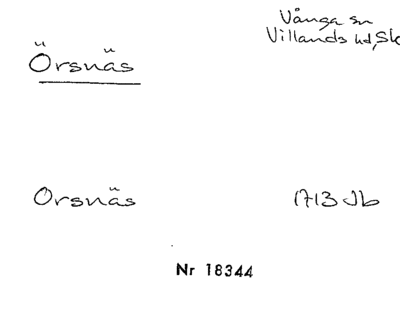 Vånga sn
Örsnäs
Villands hd, Sk
Orsnäs
1713 Jb
Nr 18344